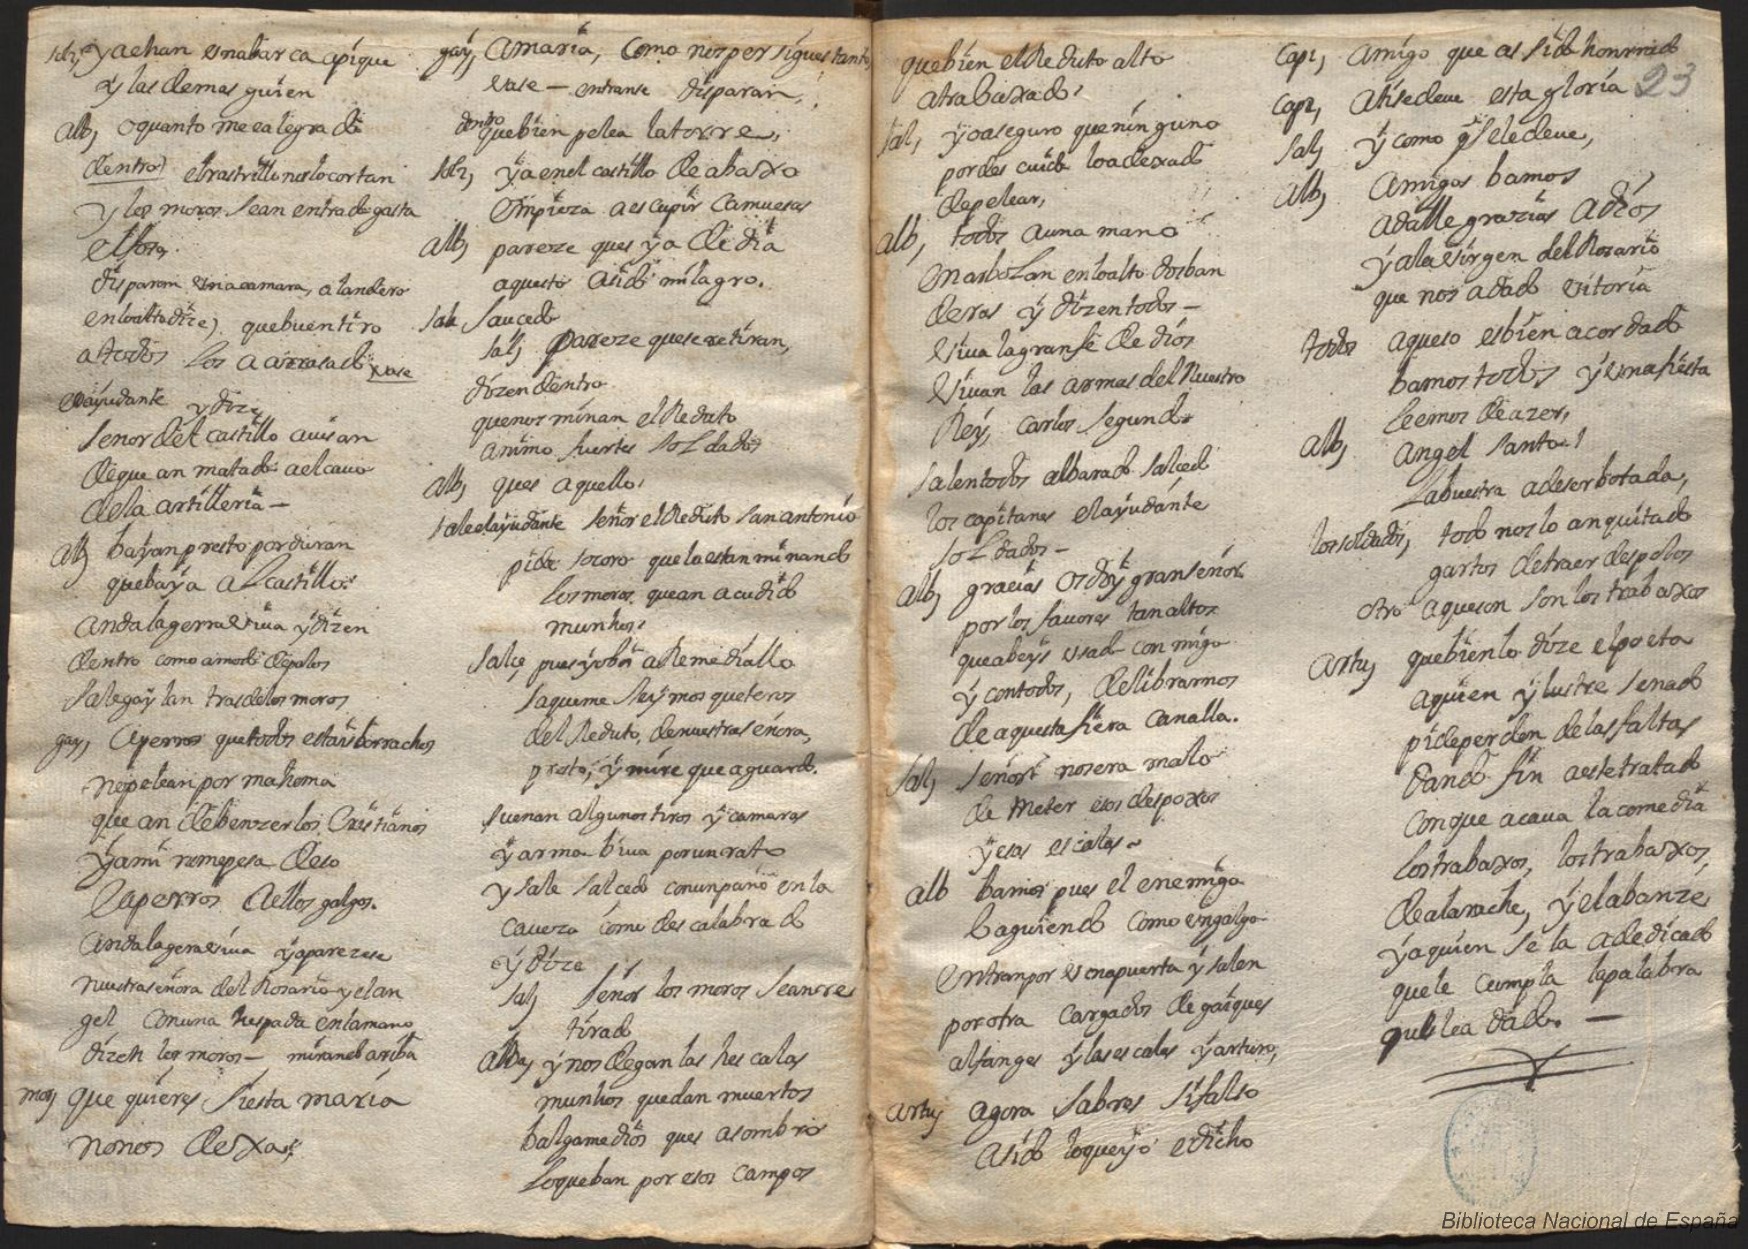 sol, ya echan una barca apique
y las demas guien
alb, o quanto me ealegrado
dentro) el rastrillo nos lo cortan
y los moros sean entrado gasta
el foso,
disparan una camara, alandero
en lo alto dize) que buen tiro
a todos los a arrasado vase
el ayudante y dize
señor del castillo avisan
de que an matado ael cavo
de la artilleria —
alb, bayan presto por duran
que baya al castillo
anda la gerra viva y dizen
dentro como amodo de palos
sale gaytan tras de los moros
gay, a perros que todos estais borrachos
no pelean por mahoma
que an de benzer los Cristianos
y a mi no me pesa deso
a perros a ellos galgos.
anda la gera viva y aparezese
nuestra señora del Rosario y el an
gel con una hespada en la mano
dizen los moros — mirando ariba
mor, que quieres fiesta maria
no nos dexas,
gay, a maria, como nos persigues tanto,
vase — entranse disparan,
dentro que bien pelea la torre,
sol, ya en el castillo de abaxo
empieza a escupir camuesas
alb, pareze ques ya de dia
aquesto a sido milagro.
sale saucedo
sal, pareze que se retiran,
dizen dentro
que nos minan el Reduto
animo fuertes soldados
alb, ques aquello,
sale el ayudante señor el Reduto san antonio
pide socoro que la estan minando
los moros que an acudido
munhos,
salce, pues yo boi a Remediallo
saqueme seys mosqueteros
del Reduto, de nuestra señora,
presto, y mire que aguardo.
suenan algunos tiros y camaras
y arma biva por un rato
y sale salcedo con un paño en la
caveza como descalabrado
y dize
sal, señor los moros sean re
tirado
alb, y nos llegan las hescalas
munhos quedan muertos
balgame dios ques asombro
lo que ban por esos campos
que bien el Reduto alto
a trabaxado,
sal, yo aseguro que ninguno
por descuido lo a dexado
de pelear,
alb, todos a una mano
enarbolan en lo alto dos ban
deras y dizen todos —
viva la gran fe de dios
vivan las armas del Nuestro
Rey, carlos segundo
salen todos albarado salcedo
los capitanes el ayudante
soldados —
alb, gracias os doy gran señor
por los favores tan altos
que abeys usado con migo
y con todos, de librarnos
de aquesta fiera canalla.
sal, señor no sera malo
de meter esos despoxos
y esas escalas —
alb bamos pues el enemigo
ba guiendo como un galgo
entran por una puerta y salen
por otra cargados de gaiques
alfanges y las escalas y arturo,
artu, agora sabres si falso
a sido lo que yo e dicho
capi, amigo que as sido honrrado
23
capi, a ti se deve esta gloria
sal, y como q se le deve,
alb, amigos bamos
a dalle grazias a dios
y a la virgen del Rosario
que nos a dado vitoria
todos aqueso es bien acordado
bamos todos y una fiesta
le emos de azer,
alb, angel santo
la buestra a de ser botada,
los soldados, todo nos lo an quitado
gartos de traer despoxos
otro aquesos son los trabaxos
artu, que bien lo dize el poeta
a quien ylustre senado
pide perdon de las faltas
dando fin a este tratado
con que acava la comedia
los trabaxos, los trabaxos,
de alarache, y el abanze
y a quien se la a dedicado
que le cumpla la palabra
que le a dado. —
Biblioteca Nacional de España